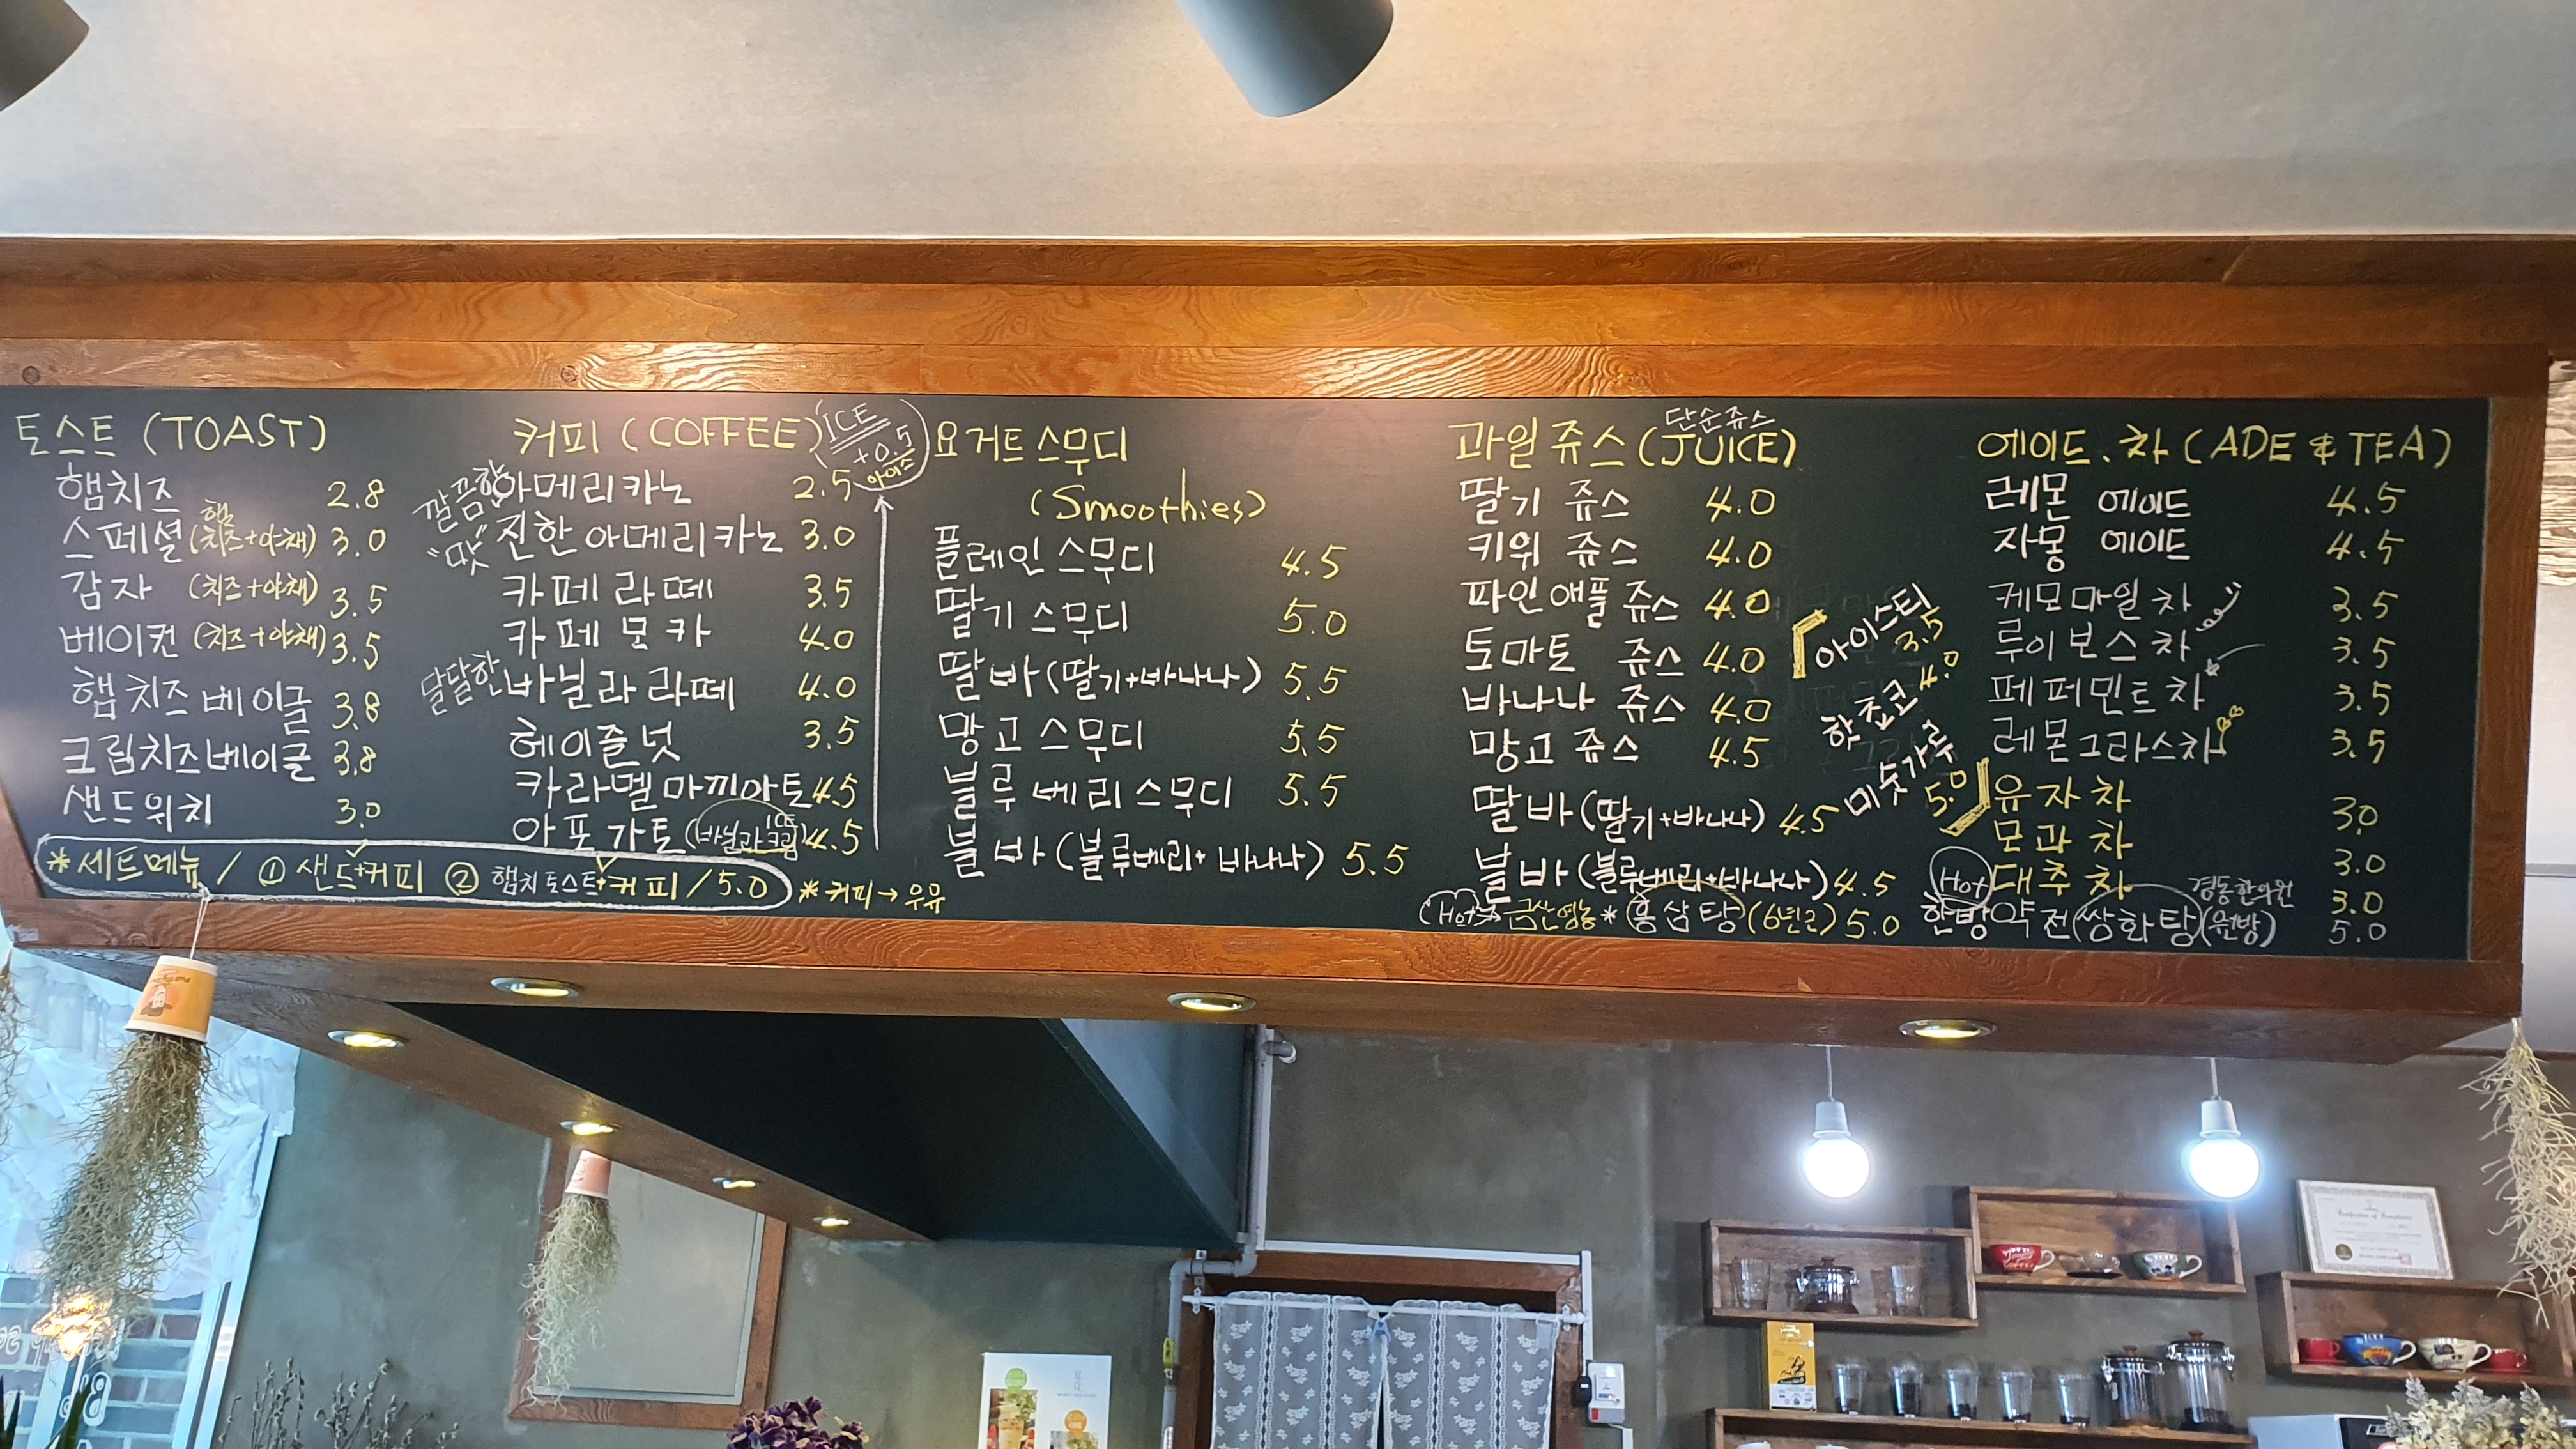 토스트 (TOAST)
햄치즈 2.8
스페셜 (햄치즈+야채) 3.0
감자 (치즈+야채) 3.5
베이컨 (치즈+야채) 3.5
햄치즈베이글 3.8
크림치즈베이글 3.8
샌드위치 3.0
커피 (COFFEE)
ICE
+0.5
아이스
깔끔한 아메리카노 2.5
"맛" 진한아메리카노 3.0
카페라떼 3.5
카페모카 4.0
달달한 바닐라라떼 4.0
헤이즐넛 3.5
카라멜마끼아또 4.5
아포가토 (바닐라ICE크림) 4.5
*세트메뉴 / ① 샌드+커피 ② 햄치토스트+커피 / 5.0
*커피→우유
요거트스무디
(Smoothies)
플레인스무디 4.5
딸기스무디 5.0
딸바 (딸기+바나나) 5.5
망고스무디 5.5
블루베리스무디 5.5
블바 (블루베리+바나나) 5.5
단순쥬스
과일쥬스 (JUICE)
딸기 쥬스 4.0
키위 쥬스 4.0
파인애플쥬스 4.0
토마토 쥬스 4.0
바나나 쥬스 4.0
망고 쥬스 4.5
딸바 (딸기+바나나) 4.5
블바 (블루베리+바나나) 4.5
Hot 금산영농 * 홍삼탕 (6년근) 5.0
아이스티 3.5
핫쵸코 4.0
미숫가루 5.0
에이드.차 (ADE & TEA)
레몬 에이드 4.5
자몽 에이드 4.5
케모마일차 3.5
루이보스차 3.5
페퍼민트차 3.5
레몬그라스차 3.5
유자차 3.0
모과차 3.0
Hot 대추차 3.0
경동한의원
한방약전 (쌍화탕) (원방) 5.0